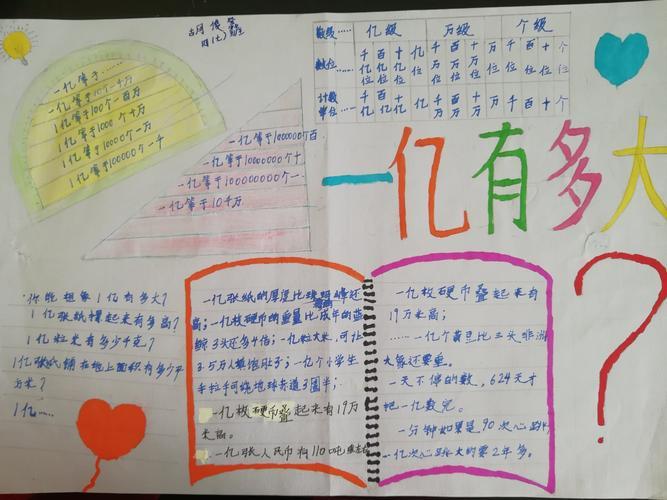 四(七)
数级…… 亿级 万级 个级
数位…… 千亿位 百亿位 十亿位 亿位 千万位 百万位 十万位 万位 千位 百位 十位 个位
计数单位…… 千亿 百亿 十亿 亿 千万 百万 十万 万 千 百 十 个
一亿等于……
一亿等于10个千万
1亿等于100个百万
1亿等于1000个十万
1亿等于10000个万
1亿等于100000个一千
一亿等于1000000个百
一亿等于10000000个十
一亿等于100000000个一
一亿等于10千万
一亿有多大?
你能想象1亿有多大?
1亿张纸摞起来有多高?
1亿粒米有多少千克?
1亿张纸铺在地上面积有多少平
方米?
1亿……
一亿张纸的厚度比珠峰还
高;一亿枚硬币的重量比成年的蓝
鲸3头还多介倍;一亿粒大米,可让
3.5万人填饱肚子;一亿个小学生
手拉手可绕地球赤道3圈半;
一亿枚硬币叠起来有19万
米高。
一亿张人民币有110吨
一亿枚硬币叠起来有
19万米高;
一亿个黄豆比三头非洲
大象还要重。
一天不停的数,624天才
把一亿数完。
一分钟如果是90次心跳,
一亿次心跳大约需2年多。